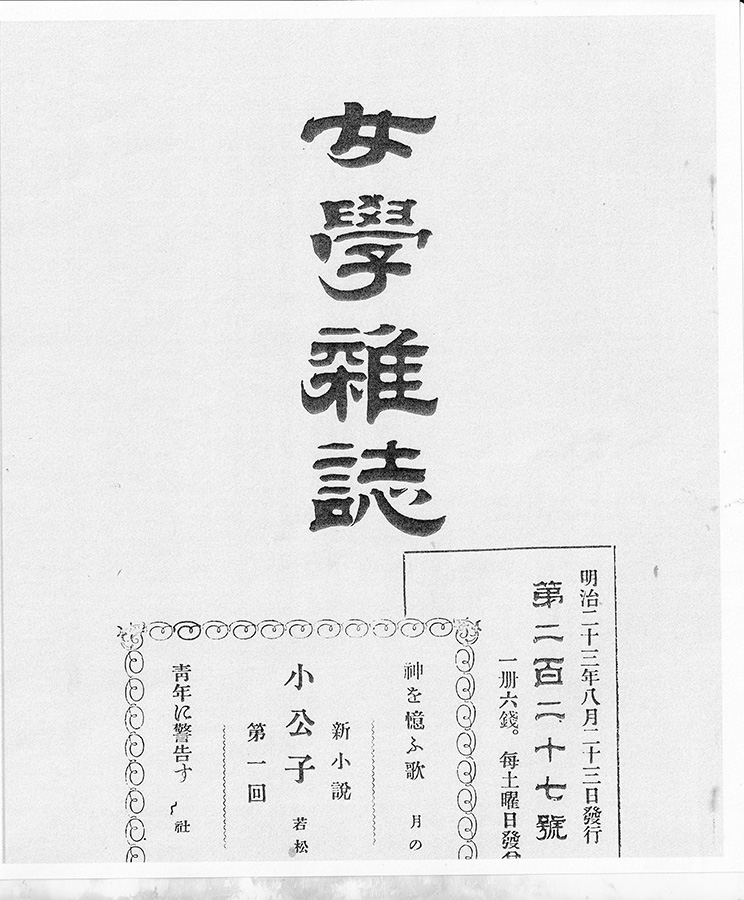 女學雜誌
明治二十三年八月二十三日發行
第二百二十七號
一册六錢。每土曜日發兌
神を憶ふ歌 月の
新小說
小公子 若松
第一回
靑年に警吿す 社